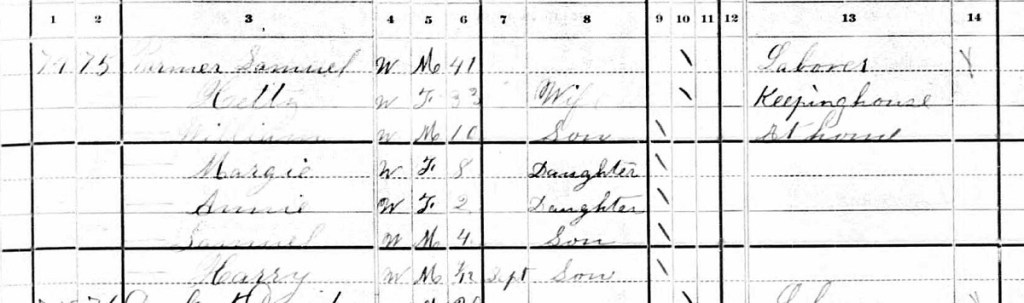 1 2 3 4 5 6 7 8 9 10 11 12 13 14
75 Samuel W M 41 \ Laborer
Hetty W F 33 Wife \ Keeping house
William W M 10 Son \ At home
Margie W F 8 Daughter \
Annie W F 2 Daughter \
Samuel W M 4 Son \
Harry W M /12 Sept Son \